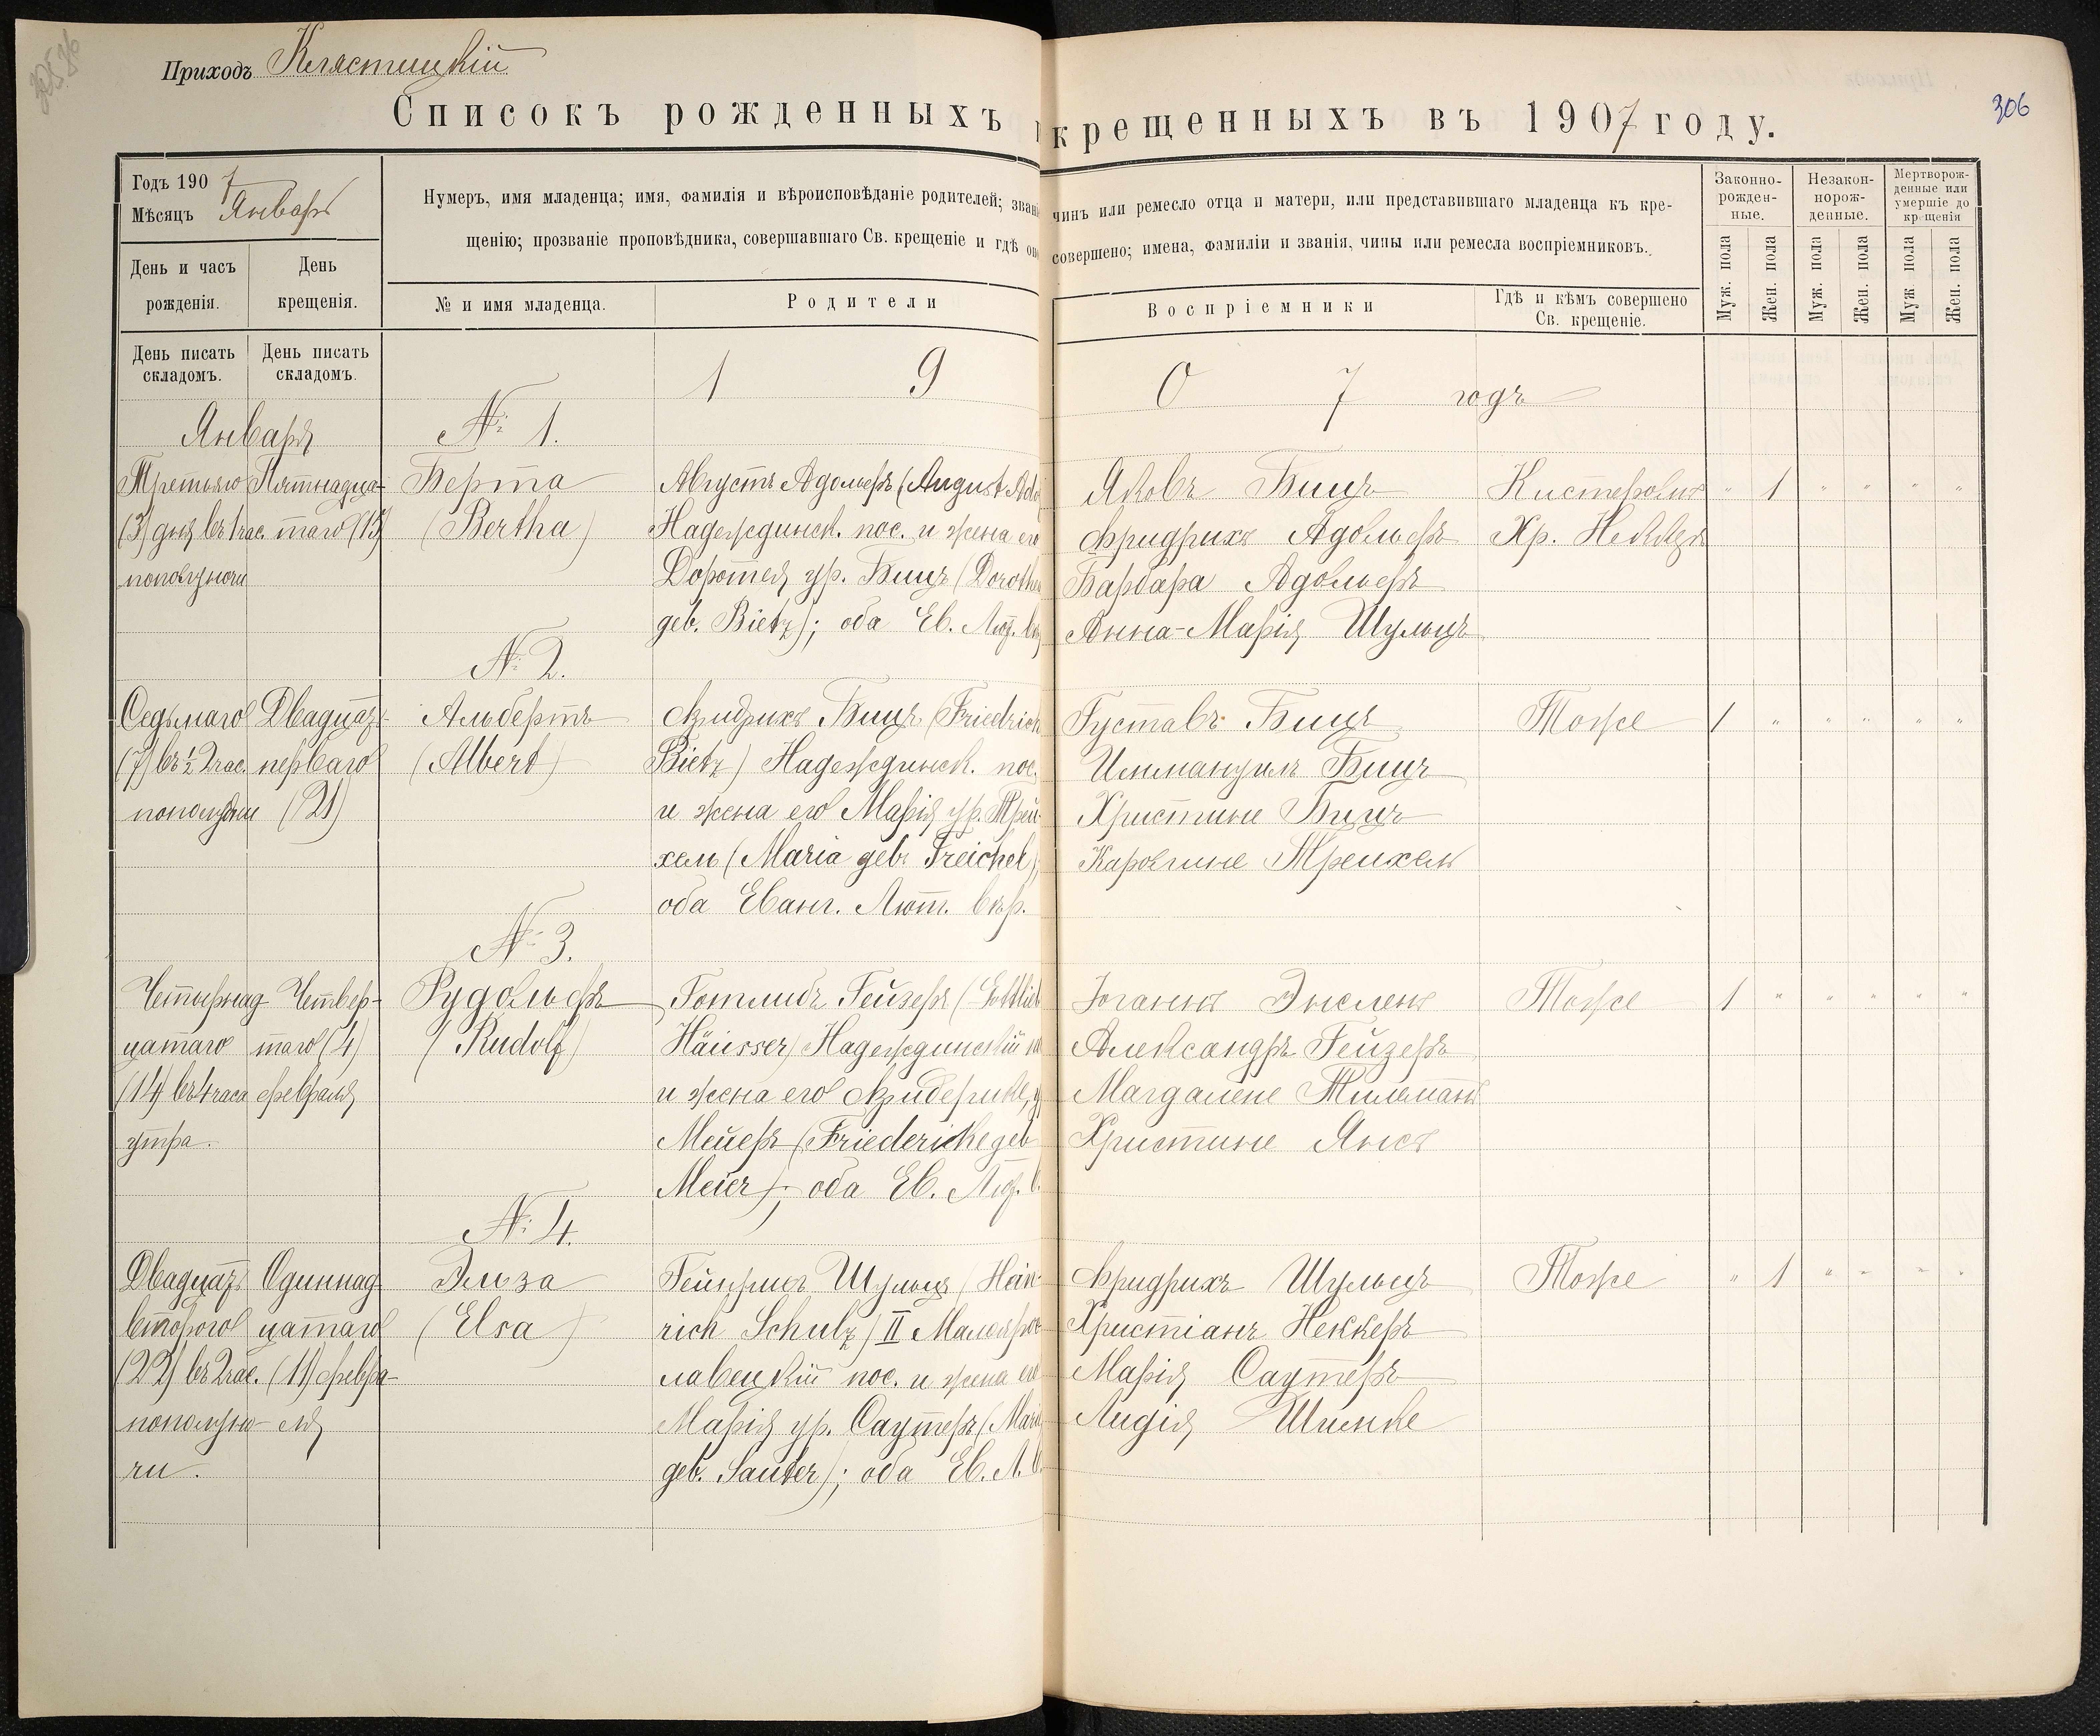 Приходъ Клястицкій
Списокъ рожденныхъ
крещенныхъ въ 1907 году.
306
Годъ 1907
Мѣсяцъ Январь
День и часъ рожденія.
День крещенія.
Нумеръ, имя младенца; имя, фамилія и вѣроисповѣданіе родителей; звані
щенію; прозваніе проповѣдника, совершавшаго Св. крещеніе и гдѣ он
№ и имя младенца.
Родители
чинъ или ремесло отца и матери, или представившаго младенца къ кре-
совершено; имена, фамиліи и званія, чины или ремесла воспріемниковъ.
Воспріемники
Гдѣ и кѣмъ совершено
Св. крещеніе.
Законно-
рожден-
ные.
Незакон-
норож-
денные.
Мертворож-
денные или
умершіе до
крещенія
Муж. пола
Жен. пола
Муж. пола
Жен. пола
Муж. пола
Жен. пола
День писать
складомъ.
День писать
складомъ.
1 9 0 7 годъ
Января
№ 1.
Третьяго
(3) дня въ 1 час.
пополуночи
Пятнадца-
таго (15)
Берта
(Bertha)
Августъ Адольфъ (August Ado
Надеждинск. пос. и жена его
Доротея ур. Бицъ (Dorothea
geb. Bietz); оба Ев. Лют.
Яковъ Бицъ
Фридрихъ Адольфъ
Барбара Адольфъ
Анна-Марія Шульцъ
Кистеромъ
Хр. Неккеръ
" 1 " " " "
№ 2.
Седьмаго
(7) въ ½ 2 час.
пополудни
Двадцать
перваго
(21)
Альбертъ
(Albert)
Фридрихъ Бицъ (Friedrich
Bietz) Надеждинск. пос.
и жена его Марія ур. Трей-
хель (Maria geb. Treichel);
оба Еванг. Лют. вѣр.
Густавъ Бицъ
Иммануилъ Бицъ
Христине Бицъ
Каролине Трейхель
Тоже
1 " " " " "
№ 3.
Четырнад
цатаго
(14) въ 4 часа
утра.
Четвер-
таго (4)
февраля
Рудольфъ
(Rudolf)
Готлибъ Гейзеръ (Gottlieb
Häusser) Надеждинскій по
и жена его Фридерике, у
Мейеръ (Friederike geb
Meier); оба Ев. Лют. в.
Іоганнъ Энсленъ
Александръ Гейзеръ
Магдалене Тильманъ
Христине Янсъ
Тоже
1 " " " " "
№ 4.
Двадцать
второго
(22) въ 2 час.
пополуно-
чи.
Одиннад
цатаго
(11) февра-
ля
Эльза
(Elsa)
Гейнрихъ Шульцъ (Hein-
rich Schulz) II Малояро-
лавецкій пос. и жена его
Марія ур. Саутеръ (Maria
geb. Sauter); оба Ев. Л. в.
Фридрихъ Шульцъ
Христіанъ Неккеръ
Марія Саутеръ
Лидія Шимке
Тоже
" 1 " " " "